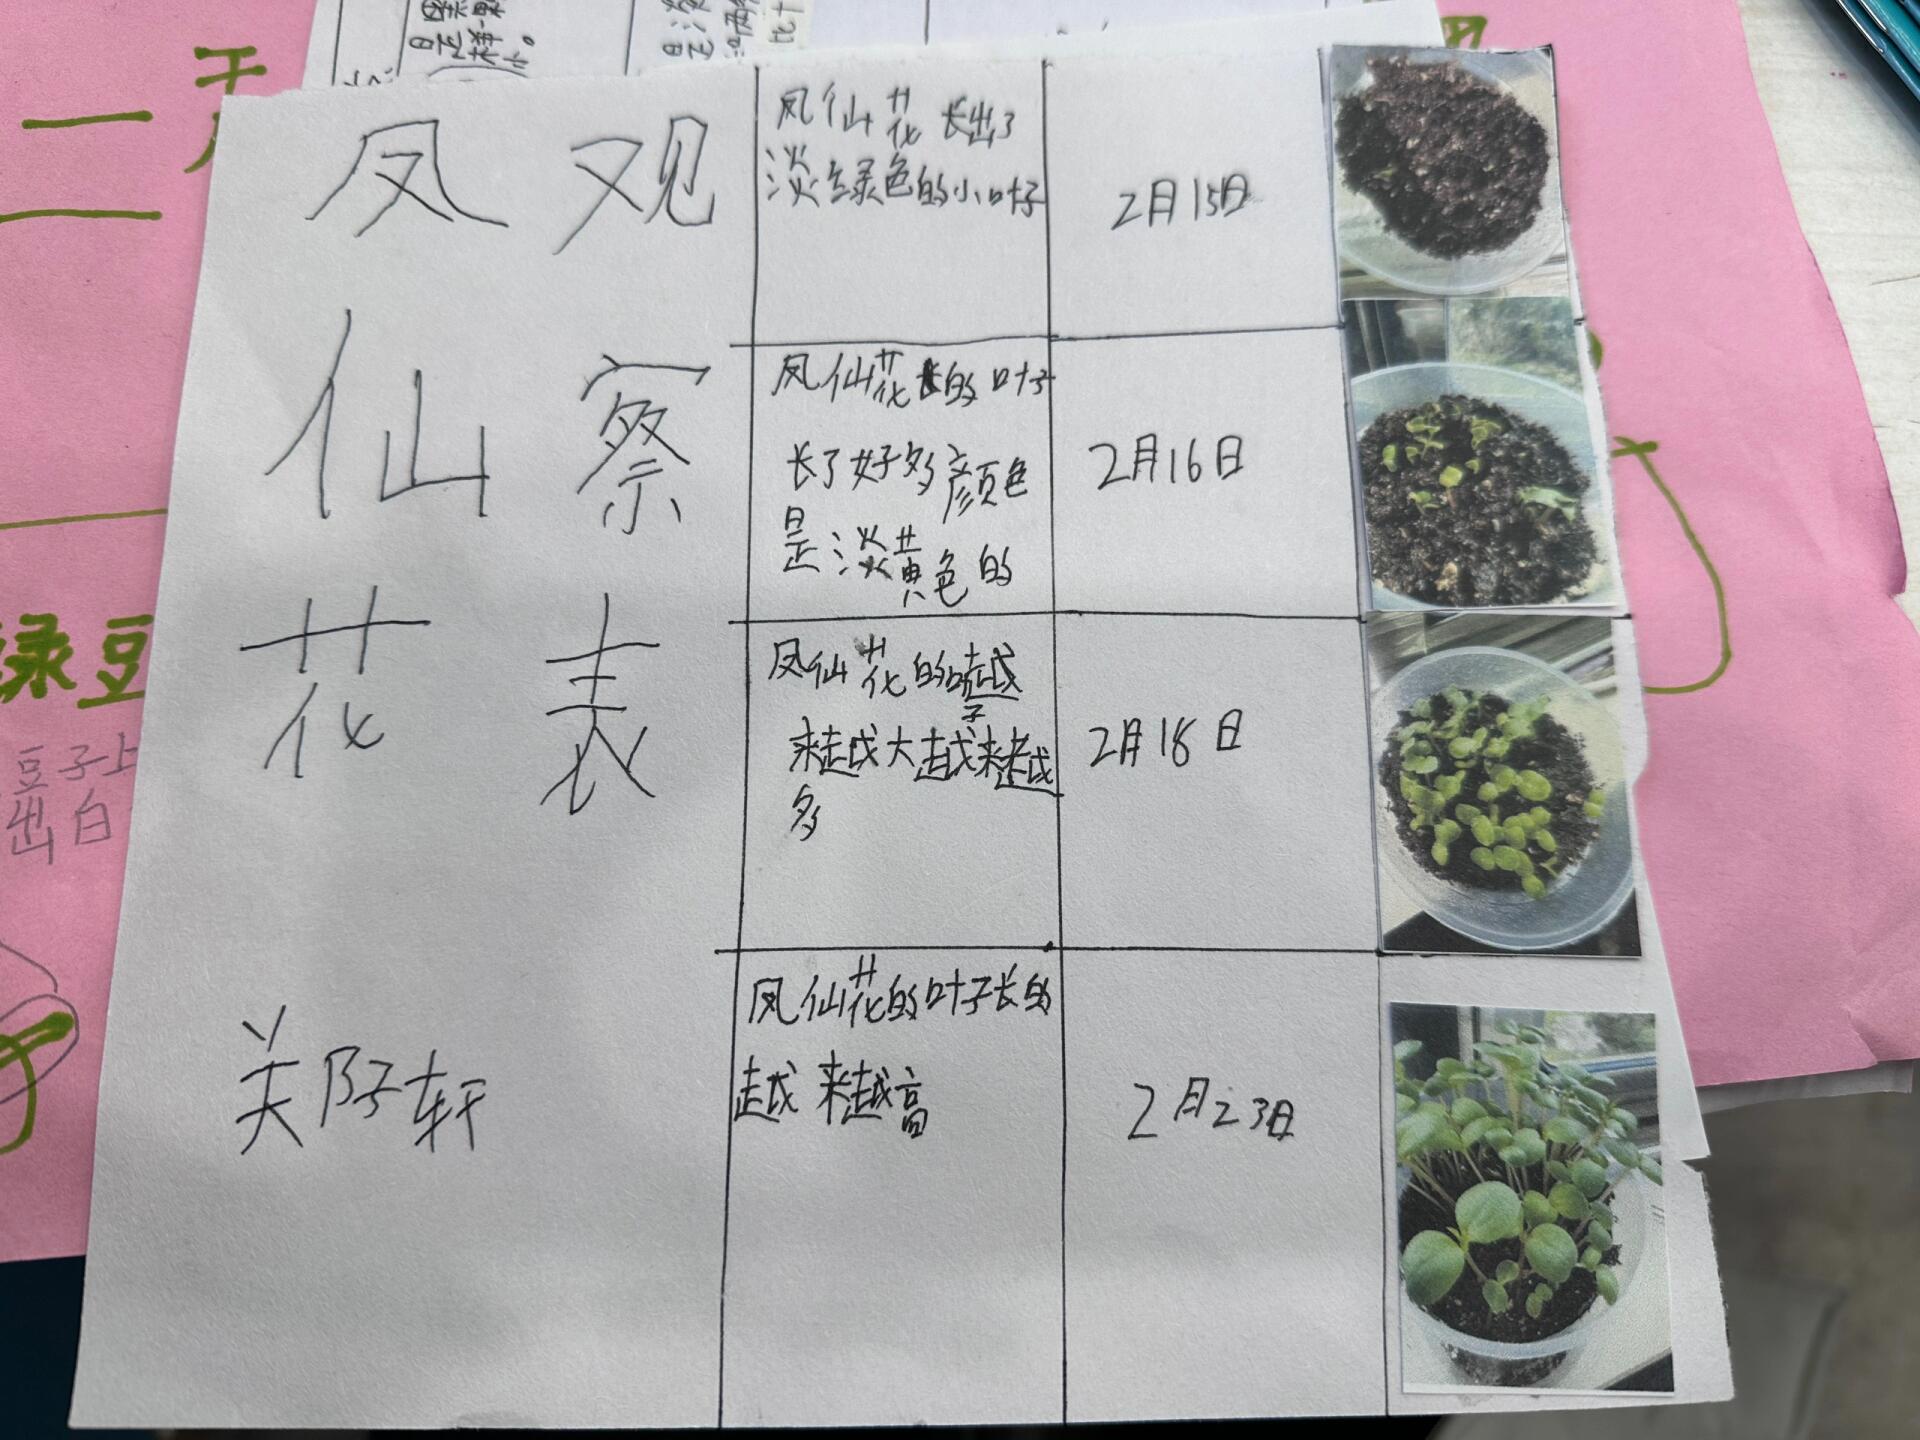 凤仙花
观察表
关阿轩
凤仙花长出了
淡绿色的小叶子
2月15日
凤仙花长的叶子
长了好多颜色
是淡黄色的
2月16日
凤仙花的叶子越
来越大越来越
多
2月18日
凤仙花的叶子长的
越来越高
2月23日
绿豆
豆子上
出白